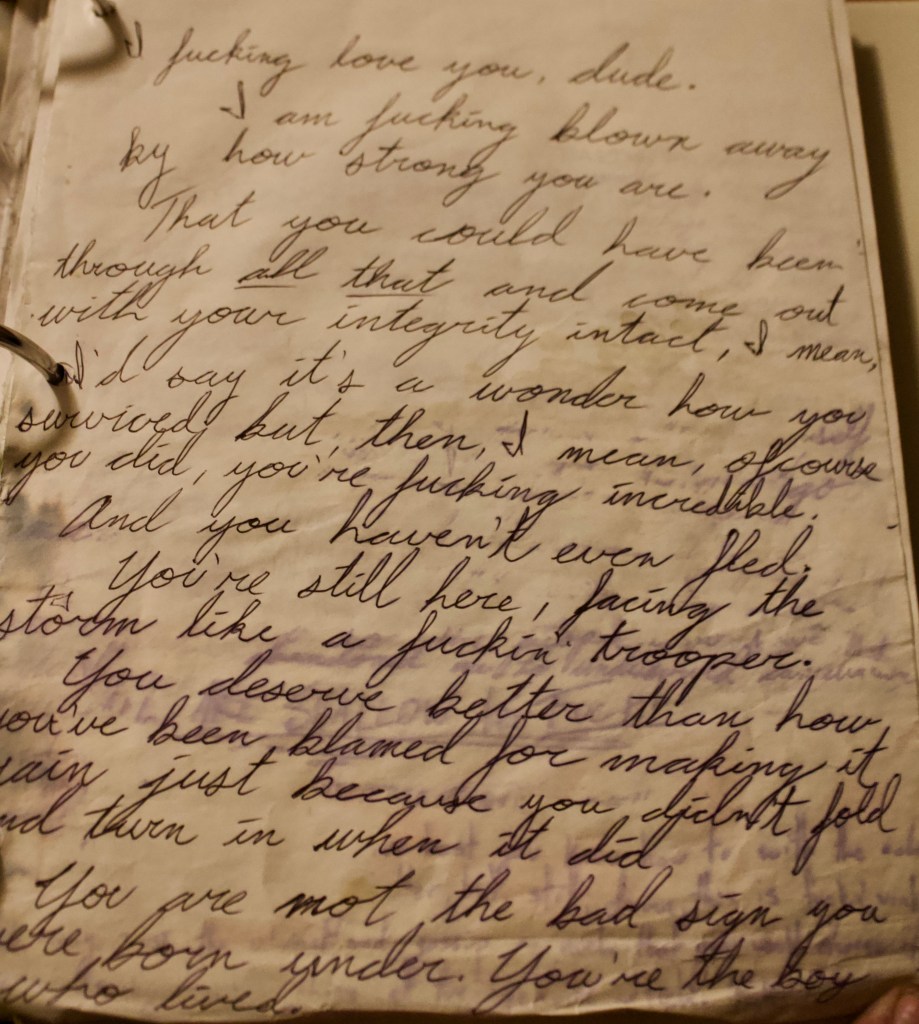 I fucking love you, dude.
I am fucking blown away
by how strong you are.
That you could have been
through all that and come out
with your integrity intact, I mean,
I'd say it's a wonder how you
survived, but, then, I mean, ofcourse
you did, you're fucking incredible.
And you haven't even fled.
You're still here, facing the
storm like a fuckin' trooper.
You deserve better than how
you've been blamed for making it
rain just because you didn't fold
nd turn in when it did
You are not the bad sign you
ere born under. You're the boy
who lived.